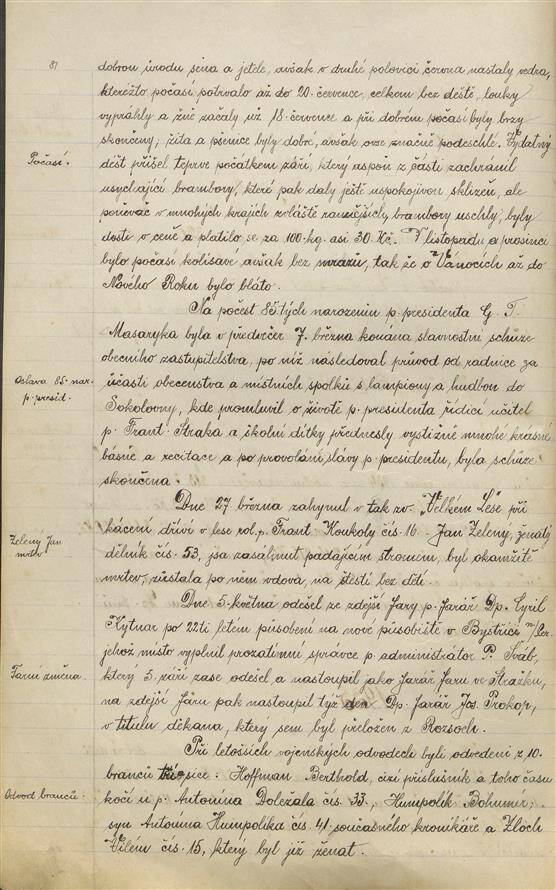 81
dobrou úrodu sena a jetele, avšak v druhé polovici června nastaly vedra,
kteréžto počasí potrvalo až do 20. července, celkem bez deště, louky
vyprahly a žně začaly už 18. července a při dobrém počasí byly brzy
skončeny; žita a pšenice byly dobré, avšak ovse značně podeschlé. Vydatný
Počasí.
déšť přišel teprve počátkem září, který aspoň z části zachránil
usychající brambory, které pak daly ještě uspokojivou sklizeň, ale
poněvač v mnohých krajích zvláště ranějších brambory uschly, byly
dosti v ceně a platilo se za 100 kg. asi 30 Kč. V listopadu a prosinci
bylo počasí kolísavé avšak bez mrazů, tak že o Vánocích až do
Nového Roku bylo bláto.
Na počest 85.tých narozenin p. presidenta G. T.
Masaryka byla v předvečer 7. března konána slavnostní schůze
obecního zastupitelstva, po níž následoval průvod od radnice za
Oslava 85. nar.
p. presid.
účasti obecenstva a místních spolků s lampiony a hudbou do
Sokolovny, kde promluvil o životě p. presidenta řídící učitel
p. Frant. Straka a školní dítky přednesly vystižně mnohé krásné
básně a recitace a po provolání slávy p. presidentu, byla schůze
skončena.
Dne 27. března zahynul v tak zv. „Velkém Lese" při
kácení dříví v lese rol. p. Frant. Koukoly čís. 16. Jan Zelený, ženatý
Zelený Jan
mrtev
dělník čís. 53, jsa zasáhnut padajícím stromem, byl okamžitě
mrtev, zůstala po něm vdova, na štěstí bez dětí.
Dne 5. května odešel ze zdejší fary p. farář Dp. Cyril
Kytnar po 22ti letém působení na nové působiště v Bystřici n/Per.
jehož místo vyplnil prozatimní správce p. administrátor P. Šváb,
Farní změna.
který 5. září zase odešel a nastoupil jako farář faru ve Strážku,
na zdejší faru pak nastoupil týž den Dp. farář Jos. Prokop,
v titulu děkana, který sem byl přeložen z Rozsoch.
Při letošních vojenských odvodech byli odvedeni z 10.
branců tři a sice: Hoffman Berthold, cizí příslušník a toho času
Odvod branců.
kočí u p. Antonína Doležala čís. 33., Humpolík Bohumír,
syn Antonína Humpolíka čís. 41. současného kronikáře a Zloch
Vilém čís. 15, který byl již ženat.